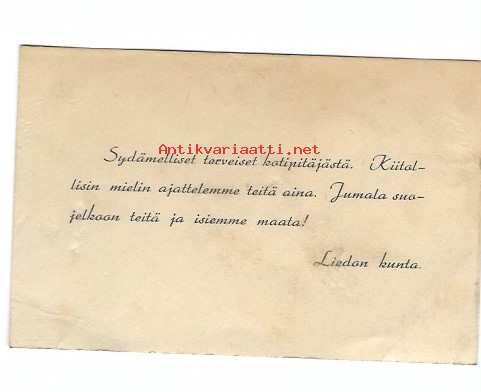 Antikvariaatti.net
Sydämelliset terveiset kotipitäjästä. Kiitol-
lisin mielin ajattelemme teitä aina. Jumala suo-
jelkoon teitä ja isiemme maata!
Liedon kunta.